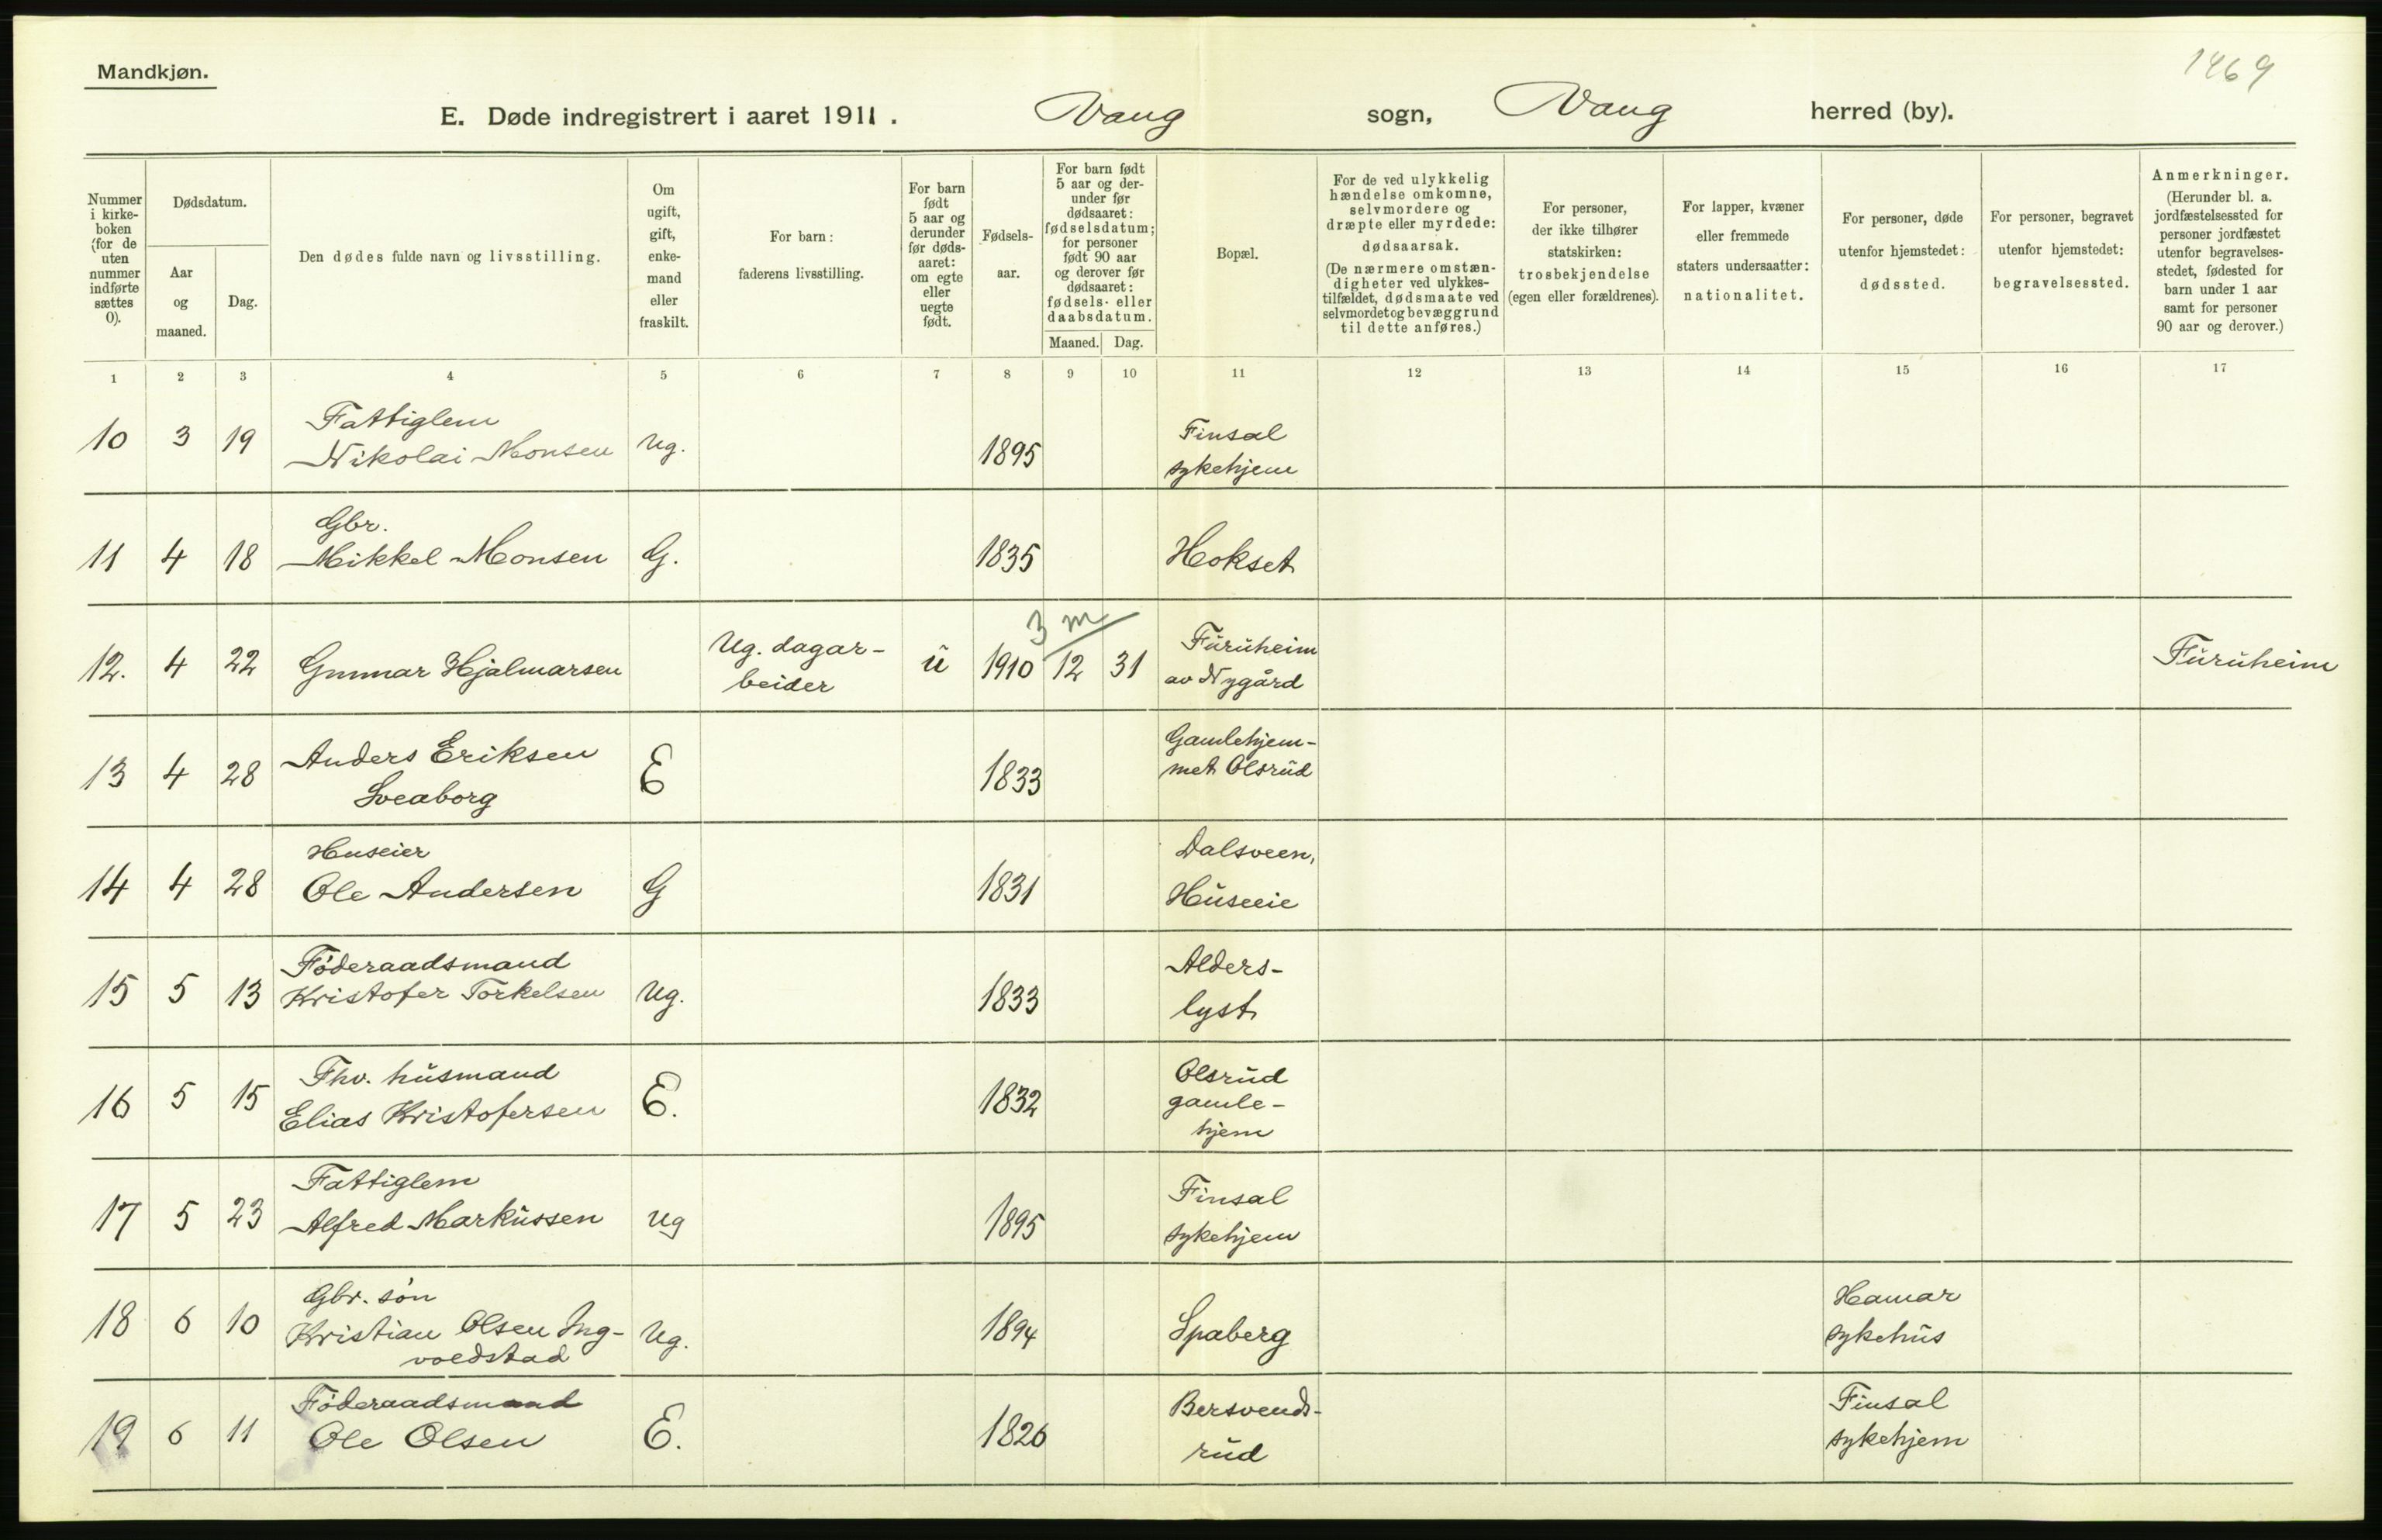 Mandkjøn.
1469
E. Døde indregistrert i aaret 1911. Vang sogn, Vang herred (by).
Nummer i kirke-boken (for de uten nummer indførte sættes 0).
Dødsdatum.
Aar og maaned.
Dag.
Den dødes fulde navn og livsstilling.
Om ugift, gift, enke-mand eller fraskilt.
For barn: faderens livsstilling.
For barn født 5 aar og derunder før døds-aaret: om egte eller uegte født.
Fødsels-aar.
For barn født 5 aar og der-under før dødsaaret: fødselsdatum; for personer født 90 aar og derover før dødsaaret: fødsels- eller daabsdatum.
Maaned. Dag.
Bopæl.
For de ved ulykkelig hændelse omkomne, selvmordere og dræpte eller myrdede: dødsaarsak. (De nærmere omstæn-digheter ved ulykkes-tilfældet, dødsmaate ved selvmordet og bevæggrund til dette anføres.)
For personer, der ikke tilhører statskirken: trosbekjendelse (egen eller forældrenes).
For lapper, kvæner eller fremmede staters undersaatter: nationalitet.
For personer, døde utenfor hjemstedet: dødssted.
For personer, begravet utenfor hjemstedet: begravelsessted.
Anmerkninger. (Herunder bl. a. jordfæstelsessted for personer jordfæstet utenfor begravelses-stedet, fødested for barn under 1 aar samt for personer 90 aar og derover.)
1 2 3 4 5 6 7 8 9 10 11 12 13 14 15 16 17
Fattiglem
10 3 19 Nikolai Monsen Ug. 1895 Finsal
sykehjem
Gbr.
11 4 18 Mikkel Monsen G. 1835 Hokset
3 m
12. 4 22 Gunnar Hjalmarsen Ug. dagar-
beider u 1910 12 31 Furuheim
av Nygård Furuheim
13 4 28 Anders Eriksen
Sveaborg E 1833 Gamlehjem-
met Olsrud
Huseier
14 4 28 Ole Andersen G 1831 Dalsveen,
Huseeie
Föderaadsmand
15 5 13 Kristofer Torkelsen Ug. 1833 Alders-
lyst
Fhv. husmand
16 5 15 Elias Kristofersen E. 1832 Olsrud
gamle-
hjem
Fattiglem
17 5 23 Alfred Markussen Ug 1895 Finsal
sykehjem
Gbr. sön
18 6 10 Kristian Olsen Ing-
voldstad Ug. 1894 Spaberg Hamar
sykehus
Föderaadsmand
19 6 11 Ole Olsen E. 1826 Bersvends-
rud Finsal
sykehjem